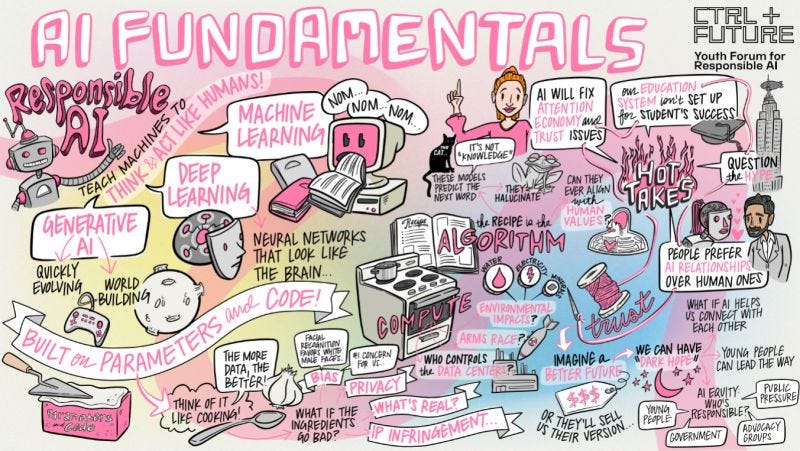 AI FUNDAMENTALS
CTRL +
FUTURE
Youth Forum for
Responsible AI
Responsible
AI
TEACH MACHINES TO
THINK & ACT LIKE HUMANS!
MACHINE
LEARNING
NOM...
NOM...
NOM...
DEEP
LEARNING
GENERATIVE
AI
QUICKLY
EVOLVING
WORLD
BUILDING
NEURAL NETWORKS
THAT LOOK LIKE
THE BRAIN...
BUILT on PARAMETERS and CODE!
Parameters
and Code
THE MORE
DATA, THE
BETTER!
THINK OF IT
LIKE COOKING!
FACIAL
RECOGNITION
FAVORS WHITE
MALE FACES.
BIAS
#1 CONCERN
FOR US...
PRIVACY
WHAT IF THE
INGREDIENTS
GO BAD?
WHAT'S REAL?
IP INFRINGEMENT...
THE
CAT...
IT'S NOT
"KNOWLEDGE"
THESE MODELS
PREDICT THE
NEXT WORD
THEY
HALUCINATE
CAN THEY
EVER ALIGN
with
HUMAN
VALUES?
Recipe
the RECIPE is the
ALGORITHM
COMPUTE
WATER
ELECTRICITY
MINERALS
ENVIRONMENTAL
IMPACTS?
ARMS RACE?
WHO CONTROLS
the DATA CENTERS?
AI WILL FIX
ATTENTION
ECONOMY and
TRUST ISSUES
our EDUCATION
SYSTEM isn't SET UP
for STUDENT'S SUCCESS
HOT
TAKES
QUESTION
the HYPE
PEOPLE PREFER
AI RELATIONSHIPS
OVER HUMAN ONES
trust
IMAGINE a
BETTER FUTURE
$$$
OR THEY'LL SELL
US THEIR VERSION...
WE CAN HAVE
"DARK HOPE"
WHAT IF AI HELPS
US CONNECT WITH
EACH OTHER
YOUNG PEOPLE
CAN LEAD THE WAY
AI EQUITY:
WHO'S
RESPONSIBLE?
PUBLIC
PRESSURE
YOUNG
PEOPLE
GOVERNMENT
ADVOCACY
GROUPS